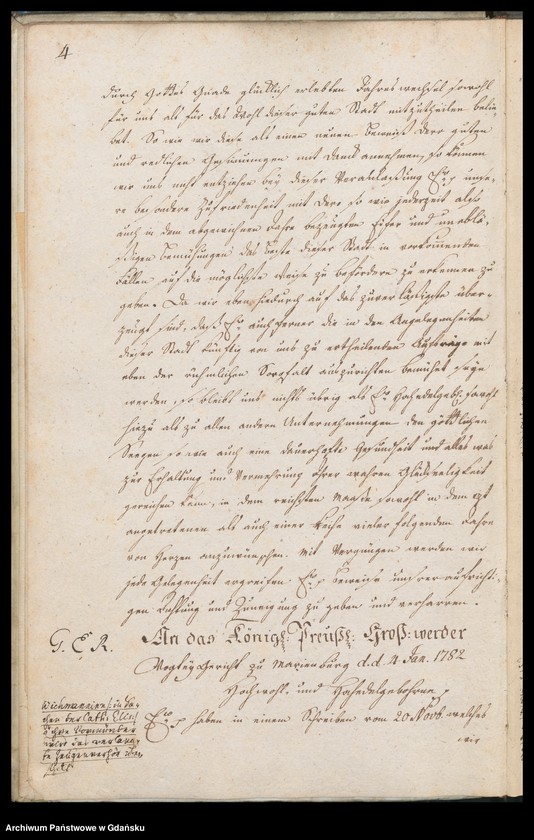 4
durch Gottes Gnade glücklich erlebten Jahres wechsel sowohl
für uns als für das Wohl dieser guten Stadt mitzutheilen belie-
bet. So wie wir diese als einen neuen Beweiß dero guten
und redlichen Gesinnungen mit Dank annehmen, so können
wir uns nicht entziehen bey dieser Veranlaßung Ew. unse-
re besondere Zufriedenheit mit dero so wie jederzeit also
auch in dem abgewichnen Jahre bezeugten Eifer und unabläs-
sigen Bemühungen das Beste dieser Stadt in vorkommenden
Fällen auf die möglichste Weise zu befördern zu erkennen zu
geben. Da wir eben hiedurch auf das zuverläßigste über-
zeugt sind, daß Ew. auch ferner die in den Angelegenheiten
dieser Stadt künftig von uns zu ertheilenden Aufträge mit
eben der rühmlichen Sorgfalt auszurichten bemühet seyn
werden, so bleibt uns nichts übrig als Ew. Hochedelgeb. sowohl
hiezu als zu allen andern Unternehmungen den göttlichen
Seegen so wie auch eine dauerhafte Gesundheit und alles was
zur Erhaltung und Vermehrung ihrer wahren Glückseeligkeit
gereichen kann, in dem reichsten Maaße sowohl in dem itzt
angetretenen als auch einer Reihe vieler folgenden Jahre
von Herzen anzuwünschen. Mit Vergnügen werden wir
jede Gelegenheit ergreifen Ew. Beweise unsrer aufrichti-
gen Achtung und Zuneigung zu geben und verharren.
G. E. R.
An das Königl: Preußl: Groß: werder
Vogtey Gericht zu Marienburg d.d. 4 Jan. 1782
Hochwohl- und Hochedelgebohrne
Ew. haben in einem Schreiben vom 20 Novb. welches
wir
Wichmannin in Sa-
chen der Cath. Elis.